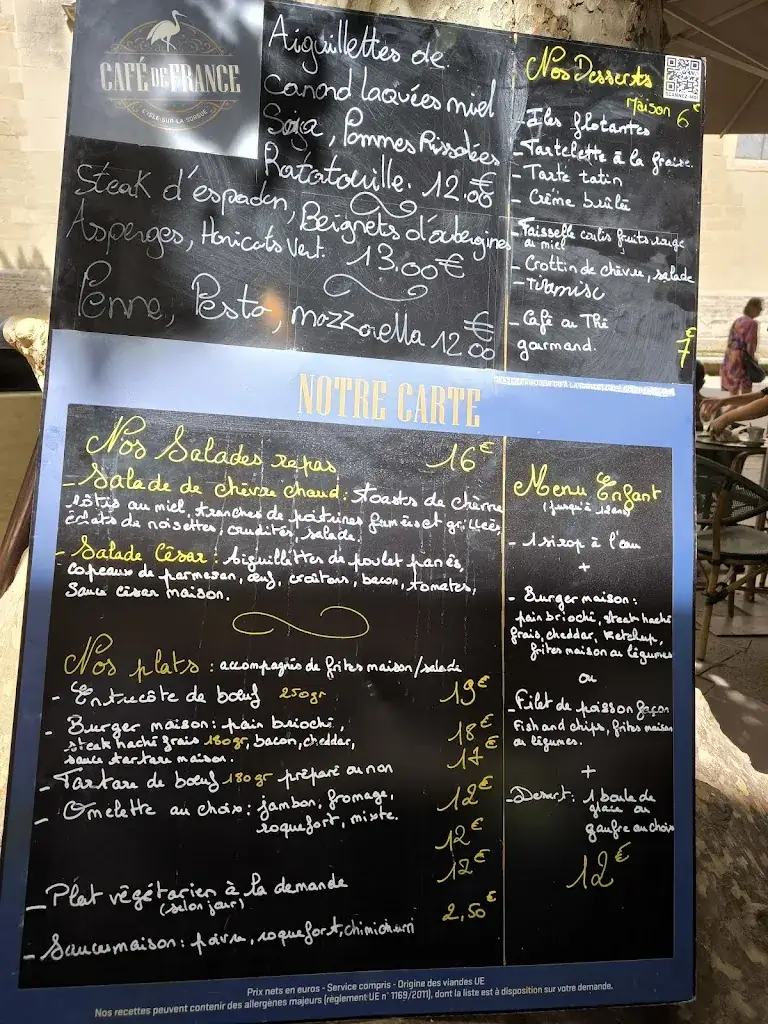 CAFÉ DE FRANCE
L'ISLE-SUR-LA-SORGUE
Aiguillettes de
canard laquées miel
Soja, Pommes Rissolées
Ratatouille. 12.00€
Steak d'espadon, Beignets d'aubergines
Asperges, Haricots Vert. 13.00€
Penne, Pesto, mozzarella 12.00€
Nos Desserts
Maison 6€
- Iles flotantes
- Tartelette à la fraise.
- Tarte tatin
- Crème brûlée
- Faisselle coulis fruits rouge
ou miel
- Crottin de chèvre, salade
- Tiramisu
- Café ou Thé
gourmand. 7€
NOTRE CARTE
Nos Salades repas 16€
- Salade de chèvre chaud : toasts de chèvre
rôtis au miel, tranches de poitrines fumées et grillées,
éclats de noisettes, crudités, salade.
- Salade César : Aiguillettes de poulet panés,
copeaux de parmesan, œuf, croûtons, bacon, tomates,
Sauce césar maison.
Nos plats : accompagnés de frites maison/salade
- Entrecôte de bœuf 250gr 19€
- Burger maison : pain brioché, 18€
steak haché frais 180gr, bacon, cheddar,
sauce tartare maison. 17€
- Tartare de bœuf 180gr préparé ou non
- Omelette au choix : jambon, fromage, 12€
roquefort, mixte.
12€
12€
- Plat végétarien à la demande
(selon jour)
2,50€
- Sauces maison : poivre, roquefort, chimichurri
Menu Enfant
(jusqu'à 12ans)
- 1 sirop à l'eau
+
- Burger maison :
pain brioché, steak haché
frais, cheddar, ketchup,
frites maison ou légumes
ou
- Filet de poisson façon
Fish and chips, frites maison
ou légumes.
+
- Dessert : 1 boule de
glace ou
gaufre au choix
12€
Prix nets en euros - Service compris - Origine des viandes UE
Nos recettes peuvent contenir des allergènes majeurs (règlement UE n° 1169/2011), dont la liste est à disposition sur votre demande.